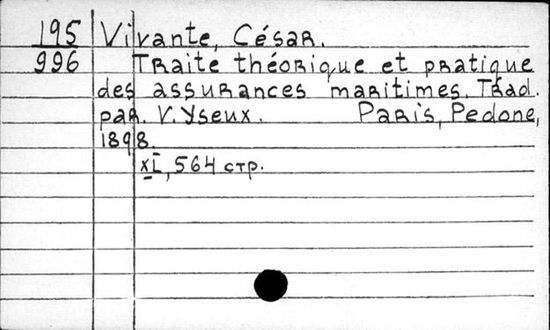 195 Vivante, César.
996 Traite théorique et pratique
des assurances maritimes. Trad.
par. V. Yseux. Paris, Pedone,
1898.
XI, 564 стр.